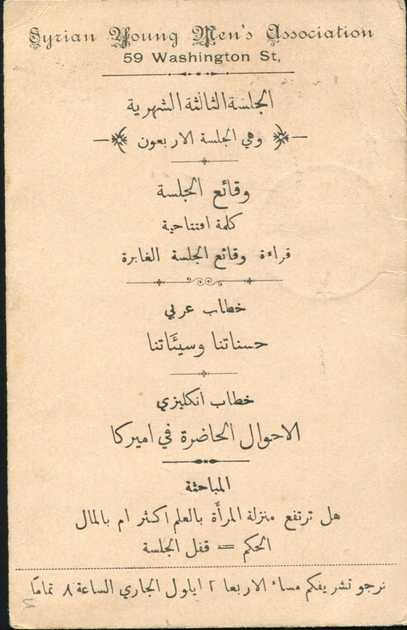 Syrian Young Men's Association
59 Washington St,
الجلسة الثالثة الشهرية
وهي الجلسة الاربعون
وقائع الجلسة
كلمة افتتاحية
قراءة وقائع الجلسة الغابرة
خطاب عربي
حسناتنا وسيئَاتنا
خطاب انكليزي
الاحوال الحاضرة في اميركا
المباحثة
هل ترتفع منزلة المرأَة بالعلم اكثر ام بالمال
الحكم = قفل الجلسة
نرجو تشريفكم مساء الاربعا ٢ ايلول الجاري الساعة ٨ تمامًا